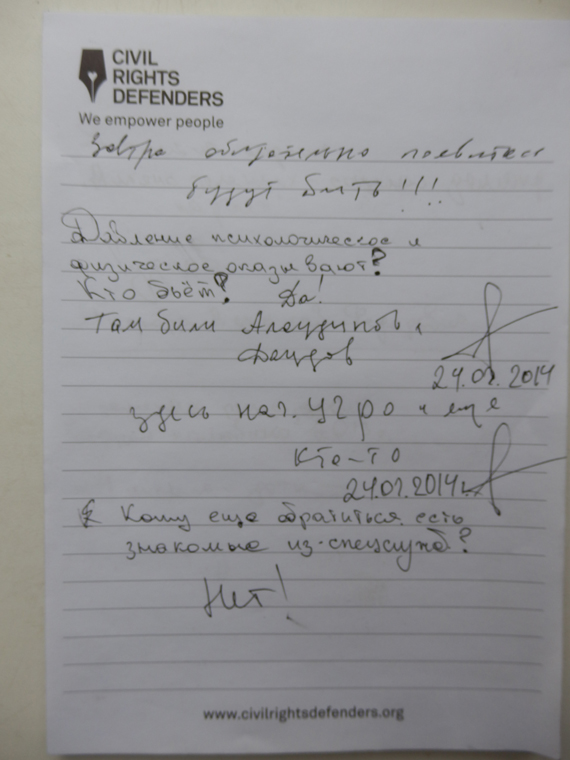 CIVIL
RIGHTS
DEFENDERS
We empower people
Завтра обязательно появитесь
будут бить!!!
Давление психологическое и
физическое оказывают?
Кто бьёт? Да!
Там били Алаудинов и
Даудов
24.02.2014
здесь нач. угро и ещё
кто-то
24.02.2014г.
К Кому еще обратиться есть
знакомые из спецслужб?
Нет!
www.civilrightsdefenders.org